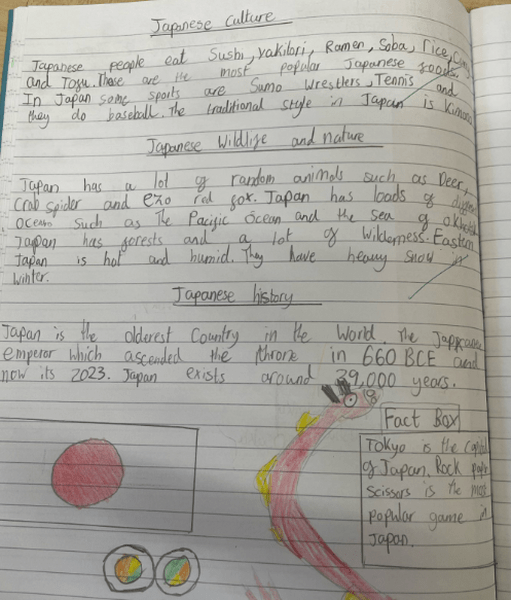 Japanese Culture
Japanese people eat Sushi, Yakitori, Ramen, Soba, rice,
and Tofu. These are the most popular Japanese foods.
In Japan some sports are Sumo Wrestlers, Tennis and
they do baseball. The traditional style in Japan is Kimono
Japanese Wildlife and nature
Japan has a lot of random animals such as Deer,
Crab spider and ezo red fox. Japan has loads of
Ocean such as The Pacific Ocean and the Sea of Okhotsk
Japan has forests and a lot of Wilderness. Eastern
Japan is hot and humid. They have heavy snow in
winter.
Japanese history
Japan is the olderest Country in the World. The
emperor which ascended the throne in 660 BCE and
now its 2023. Japan exists around 39,000 years.
Fact Box
Tokyo is the capital
of Japan. Rock paper
Scissors is the most
popular game in
Japan.